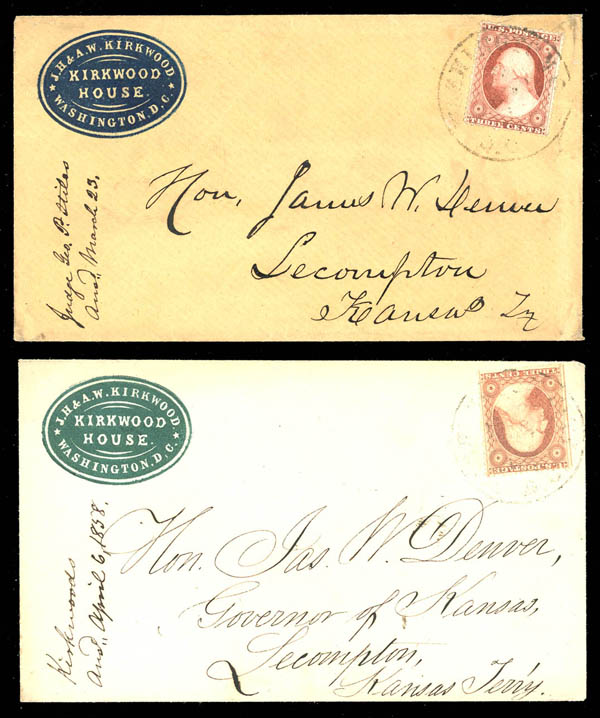 J.H. & A.W. KIRKWOOD.
KIRKWOOD
HOUSE.
WASHINGTON, D.C.
THREE CENTS
Hon. James W. Denver
Lecompton
Kansas Ty
Judge Geo. P. Stiles
Ansd. March 23.
J.H. & A.W. KIRKWOOD.
KIRKWOOD
HOUSE.
WASHINGTON, D.C.
THREE CENTS
U.S. POSTAGE
Hon. Jas. W. Denver,
Governor of Kansas,
Lecompton,
Kansas Terry.
Kirkwoods
Ansd. April 6, 1858.